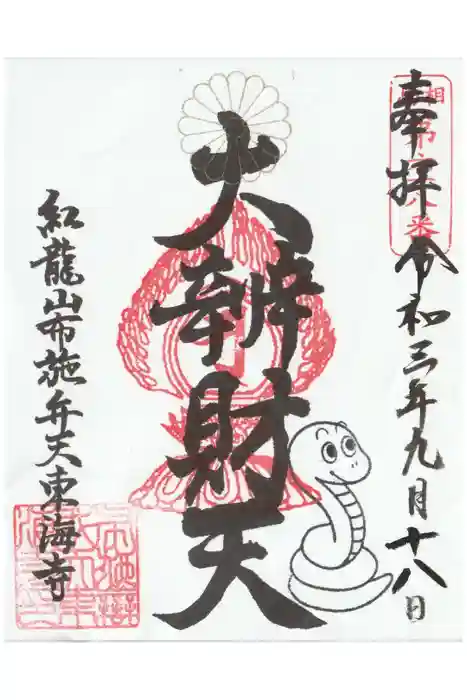 奉拝 令和三年九月十八日
大辨財天
紅龍山布施弁天東海寺